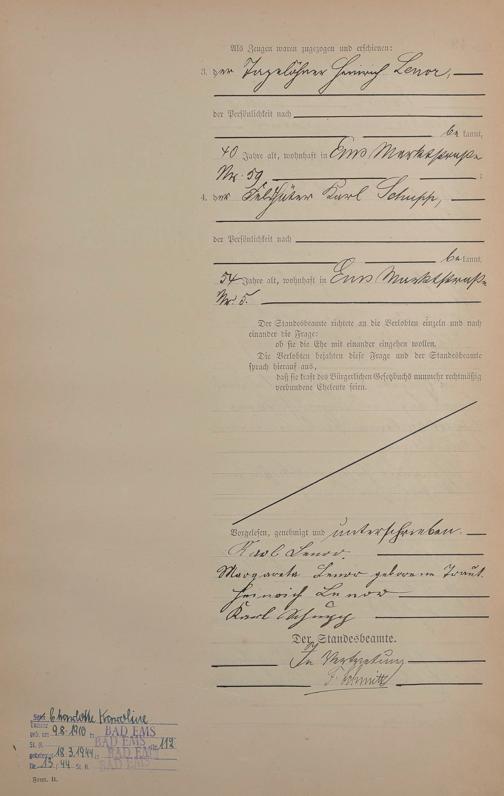 Als Zeugen waren zugezogen und erschienen:
3. der Tagelöhner Heinrich Lenor,
der Persönlichkeit nach
be kannt,
40 Jahre alt, wohnhaft in Ems Marktstraße
Nr. 59 ;
4. der Feldhüter Karl Schupp,
der Persönlichkeit nach
be kannt,
54 Jahre alt, wohnhaft in Ems Marktstraße
Nr. 5.
Der Standesbeamte richtete an die Verlobten einzeln und nach
einander die Frage:
ob sie die Ehe mit einander eingehen wollen.
Die Verlobten bejahten diese Frage und der Standesbeamte
sprach hierauf aus,
daß sie kraft des Bürgerlichen Gesetzbuchs nunmehr rechtmäßig
verbundene Eheleute seien.
Vorgelesen, genehmigt und unterschrieben.
Karl Lenor.
Margareta Lenor geborene Traut.
Heinrich Lenor
Karl Schupp
Der Standesbeamte.
In Vertretung
F. Schmitz
Charlotte Karoline
geb. am 9.8.1910 in BAD EMS
St. A. BAD EMS Nr. 112
18.3.1944 in BAD EMS
Nr. 13 / 44 St. A. BAD EMS
Form. B.